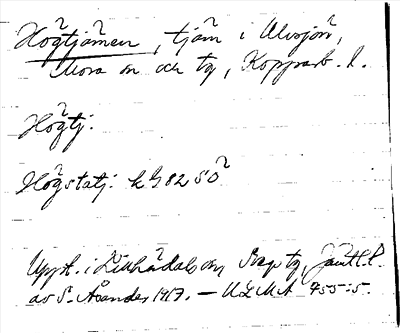 Högtjärnen, tjärn i Älvsjön,
Mora sn och tg, Kopparb. l.
Högtj.
Högstatj: k G 82 SO
Uppt. i Lillhärdals sn, Sveg tg, Jämtl. l.
av S. Åsander 1917. — ULMA 955:5.